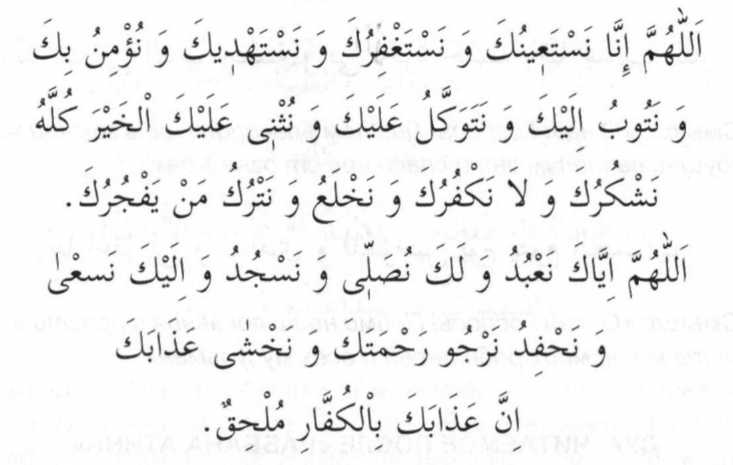 اَللّٰهُمَّ إِنَّا نَسْتَعِينُكَ وَ نَسْتَغْفِرُكَ وَ نَسْتَهْدِيكَ وَ نُؤْمِنُ بِكَ
وَ نَتُوبُ اِلَيْكَ وَ نَتَوَكَّلُ عَلَيْكَ وَ نُثْنِى عَلَيْكَ الْخَيْرَ كُلَّهُ
نَشْكُرُكَ وَ لا نَكْفُرُكَ وَ نَخْلَعُ وَ نَتْرُكُ مَنْ يَفْجُرُكَ.
اَللّٰهُمَّ اِيَّاكَ نَعْبُدُ وَ لَكَ نُصَلِّى وَ نَسْجُدُ وَ اِلَيْكَ نَسْعٰى
وَ نَحْفِدُ نَرْجُو رَحْمَتَكَ وَ نَخْشٰى عَذَابَكَ
اِنَّ عَذَابَكَ بِالْكُفَّارِ مُلْحِقٌ.